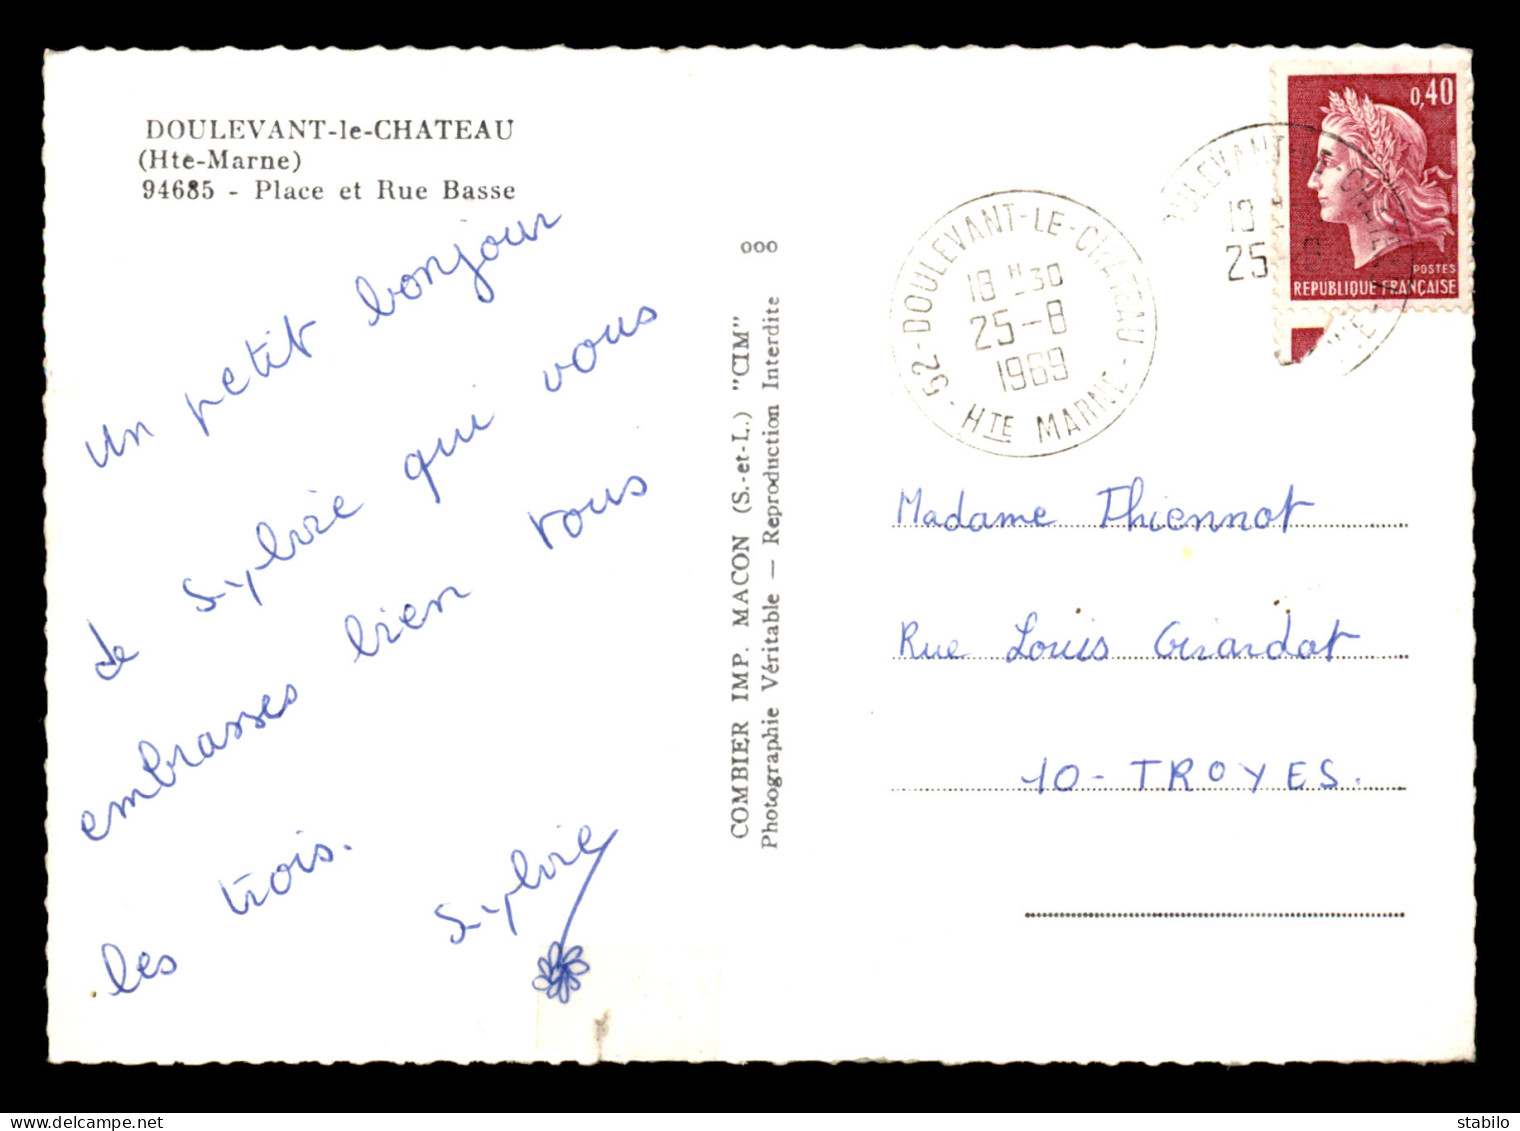 DOULEVANT-le-CHATEAU
(Hte-Marne)
94685 - Place et Rue Basse
Un petit bonjour
de Sylvie qui vous
embrasses bien tous
les trois.
Sylvie
ooo
COMBIER IMP. MACON (S.-et-L.) "CIM"
Photographie Véritable — Reproduction Interdite
52 - DOULEVANT-LE-CHATEAU - HTE MARNE
18 H 30
25-8
1969
0,40
POSTES
REPUBLIQUE FRANÇAISE
Madame Thiennot
Rue Louis Girardot
10 - TROYES.
stabilo